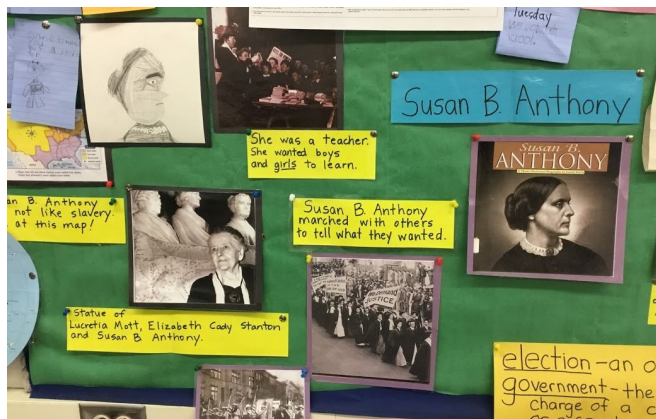 Tuesday
Susan B. Anthony
She was a teacher.
She wanted boys
and girls to learn.
Susan B.
ANTHONY
an B. Anthony
not like slavery.
at this map!
Susan B. Anthony
marched with others
to tell what they wanted.
JUSTICE
Statue of
Lucretia Mott, Elizabeth Cady Stanton
and Susan B. Anthony.
election - an o
government - the
charge of a